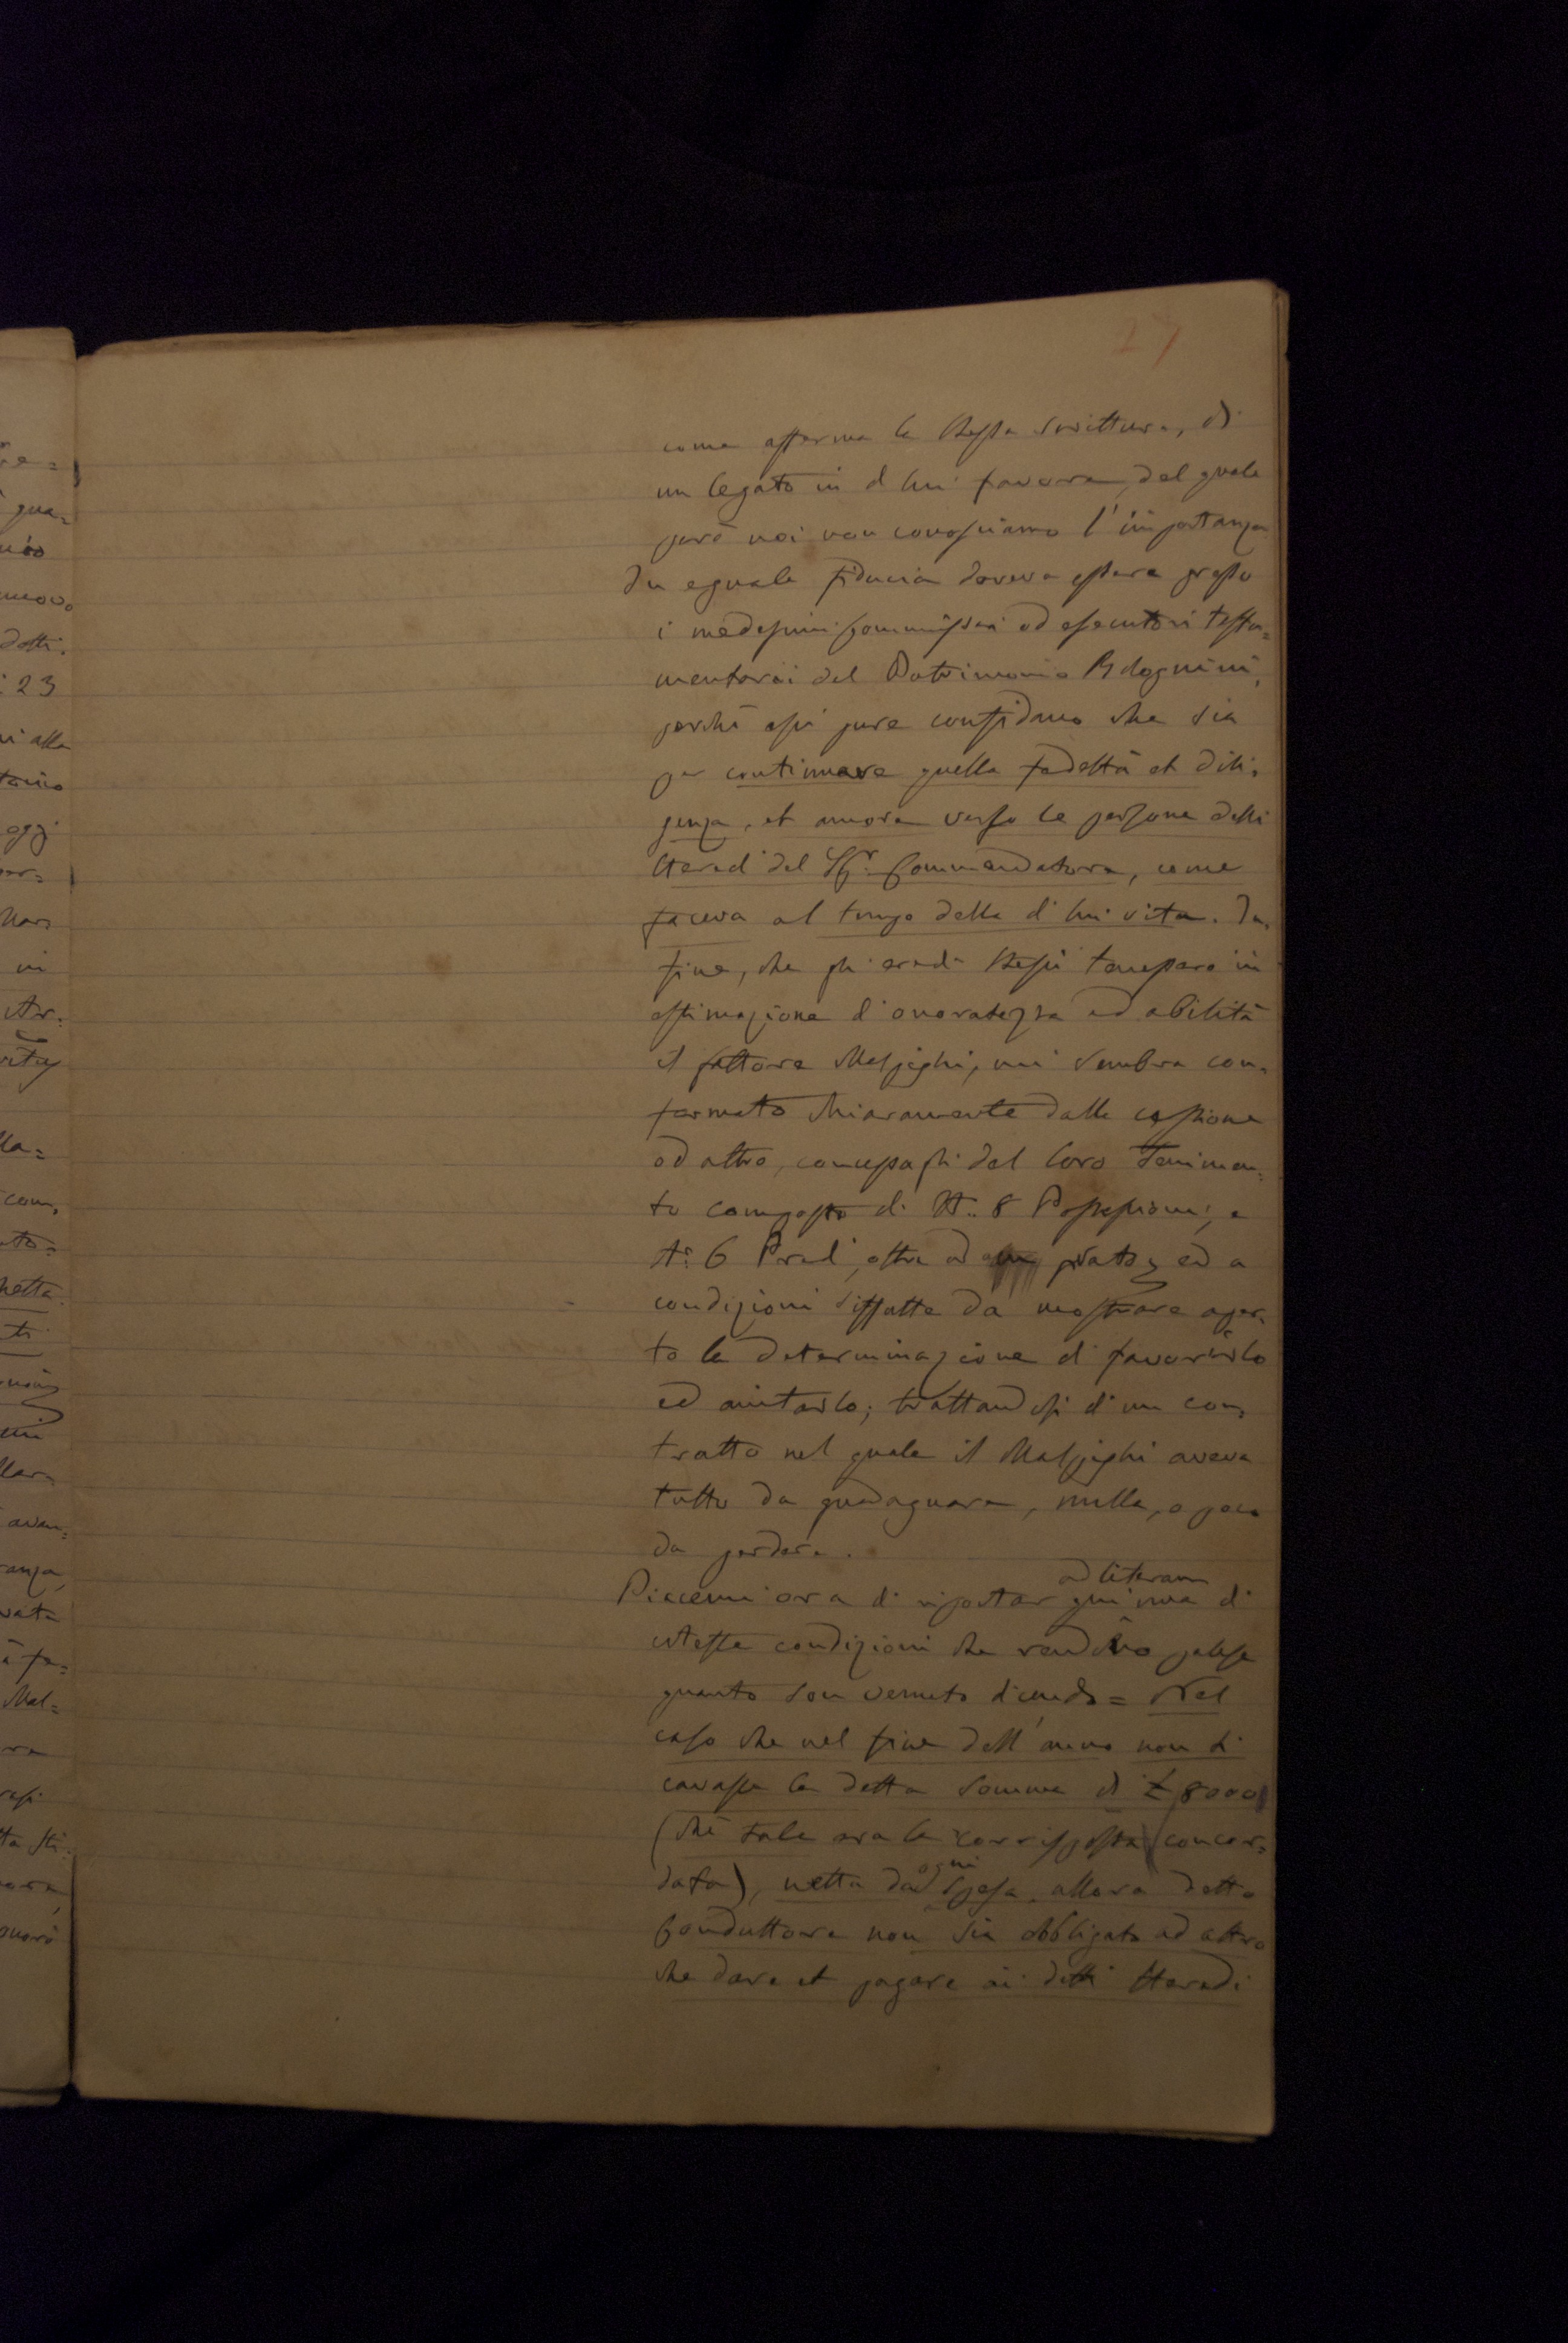 27
come afferma la stessa scrittura, di
un legato in di lui favore, del quale
però noi non conosciamo l'importanza
In eguale fiducia doveva essere presso
i medesimi Commissari ed esecutori testa=
mentarii del Patrimonio Bolognini,
perchè essi pure confidano che sia
per continuare quella fedeltà et dili=
genza, et amore verso le persone delli
Heredi del Sigr. Commendatore, come
faceva al tempo della di lui vita. In=
fine, che gli eredi stessi tenessero in
estimazione d'onoratezza ed abilità
il fattore Malpighi, mi sembra con=
fermato chiaramente dalla cessione
ad altro, concessagli del loro Tenimen=
to composto di N.. 8 Possessioni, e
N.° 6 Predi, oltre ad un prato, ed a
condizioni siffatte da mostrare aper=
to la determinazione di favorirlo
ed aiutarlo; trattandosi di un con=
tratto nel quale il Malpighi aveva
tutto da guadagnare, nulla, o poco
da perdere.
Piacemi ora di riportar qui ad literam una di
coteste condizioni che rendono palese
quanto son venuto dicendo = Nel
caso che nel fine dell'anno non si
cavasse la detta somma di £ 8000
(chè tale era la corrisposta concor=
data), netta da ogni spesa, allora detto
Conduttore non sia obbligato ad altro
che dare et pagare ai detti Heredi